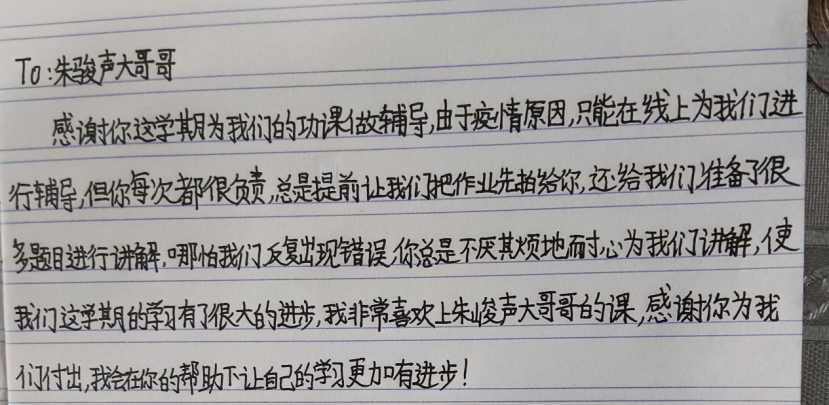 To:朱骏声大哥哥
感谢你这学期为我们的功课做辅导,由于疫情原因,只能在线上为我们进
行辅导,但你每次都很负责,总是提前让我们把作业先拍给你,还给我们准备了很
多题目进行讲解,哪怕我们反复出现错误,你总是不厌其烦地耐心为我们讲解,使
我们这学期的学习有了很大的进步,我非常喜欢上朱峻声大哥哥的课,感谢你为我
们付出,我会在你的帮助下让自己的学习更加有进步!